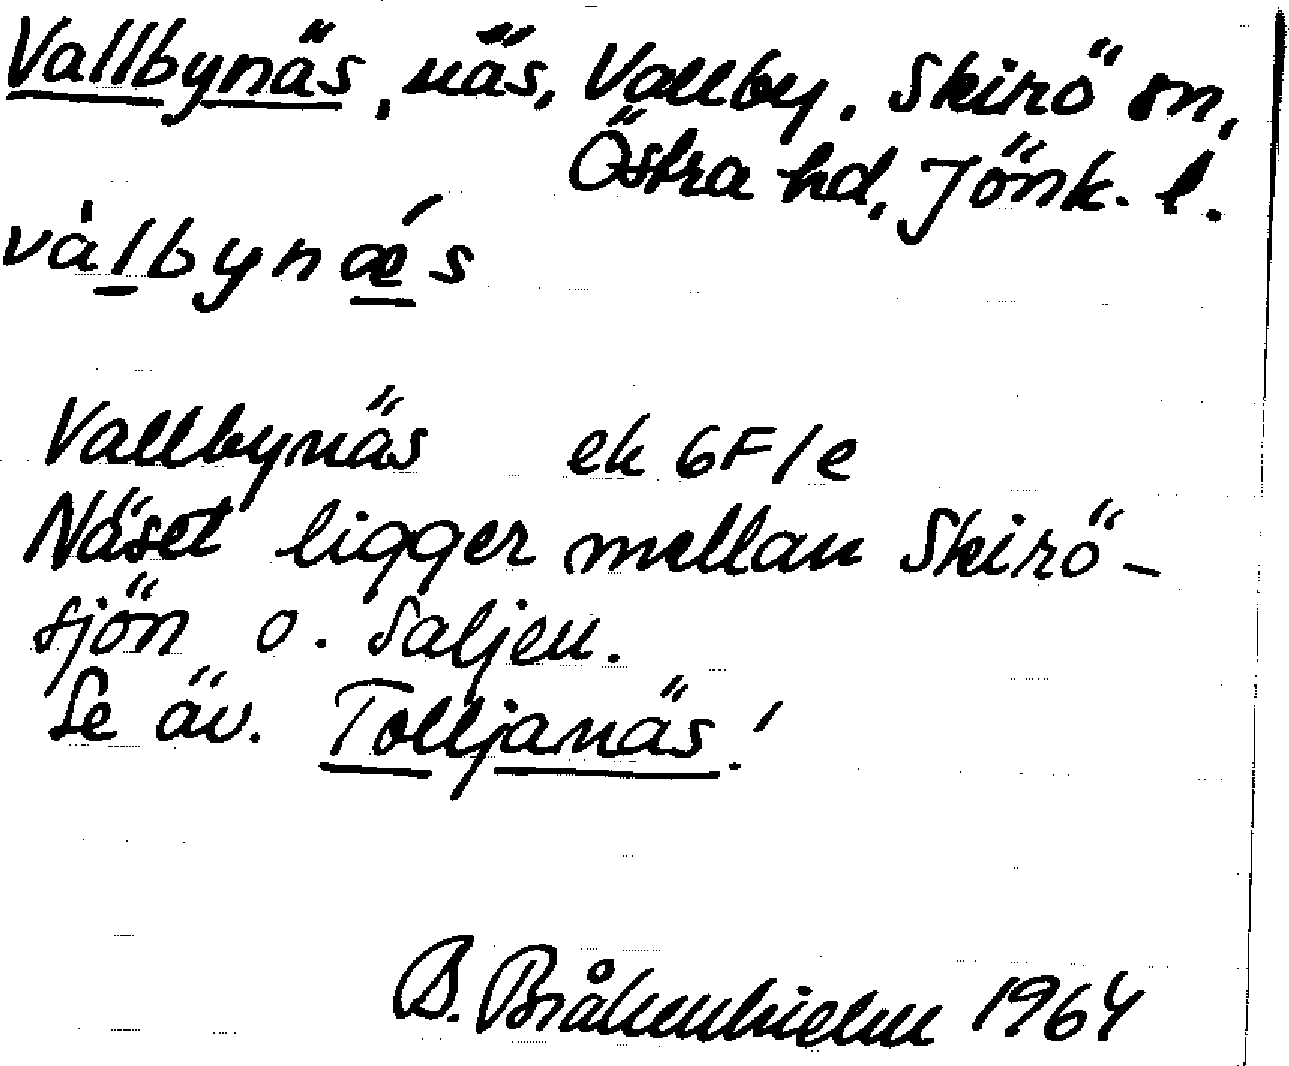 Vallbynäs, näs, Vallby. Skirö sn,
Östra hd, Jönk. l.
vàlbynǽs
Vallbynäs ek 6F/e
Näset ligger mellan Skirö-
sjön o. Saljen.
Se äv. Tolljanäs!
B. Bråkenhielm 1964